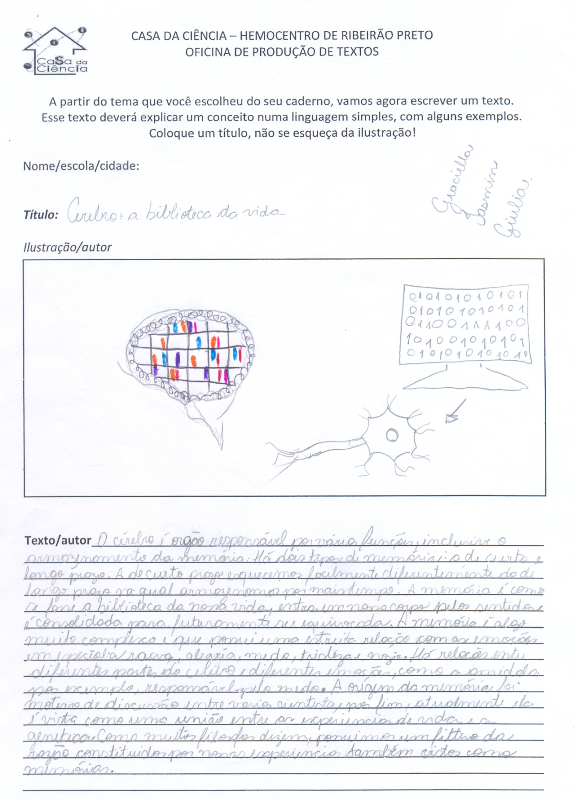 CASA DA CIÊNCIA – HEMOCENTRO DE RIBEIRÃO PRETO
OFICINA DE PRODUÇÃO DE TEXTOS
CaSa da
Ciência
A partir do tema que você escolheu do seu caderno, vamos agora escrever um texto.
Esse texto deverá explicar um conceito numa linguagem simples, com alguns exemplos.
Coloque um título, não se esqueça da ilustração!
Nome/escola/cidade:
Graciella
Iasmin
Giulia
Título: Cérebro: a biblioteca da vida
Ilustração/autor
01010101010101
Texto/autor O cérebro é orgão responsável por várias funções, inclusive o
armazenamento da memória. Há dois tipos de memórias: a de curto e
longo prazo. A de curto prazo esquecemos facilmente diferentemente da de
longo prazo na qual armazenamos por mais tempo. A memória é como
se fosse a biblioteca da nossa vida, entra em nosso corpo pelos sentidos
é consolidada para futuramente ser. A memória é algo
muito complexo e que possui uma estreita relação com as emoções
em especial a raiva, alegria, medo, tristeza e nojo. Há relações entre
diferentes partes do cérebro e diferentes emoções, como a amídala
por exemplo, responsável pelo medo. A origem da memória foi
motivo de discussão entre vários cientistas, por fim, atualmente ela
é vista como uma união entre as experiências de vida e a
genética. Como muitos filósofos dizem, possuímos um filtro da
razão constituídos por nossas experiência também vistos como
memórias.